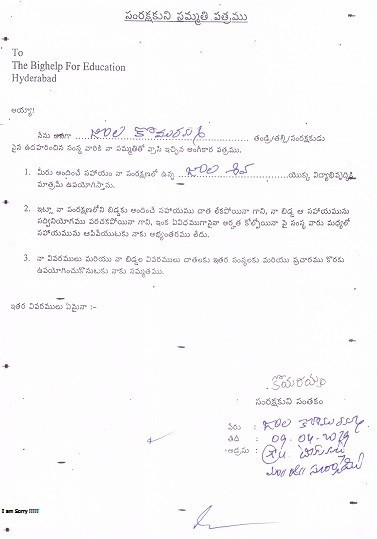 సంరక్షకుని సమ్మతి పత్రము
To
The Bighelp For Education
Hyderabad
అయ్యా!
నేను అనగా జాల కొమురయ్య తండ్రి/తల్లి/సంరక్షకుడు
పైన ఉదహరించిన సంస్థ వారికి నా సమ్మతితో వ్రాసి ఇచ్చిన అంగీకార పత్రము.
1. మీరు అందించే సహాయం నా సంరక్షణలో ఉన్న జాల శివ యొక్క విద్యాభివృద్ధికి
మాత్రమే ఉపయోగిస్తాను.
2. ఇట్లా నా సంరక్షణలోని బిడ్డకు అందించే సహాయము దాత లేకపోయినా గాని, నా బిడ్డ ఆ సహాయమును
సద్వినియోగము పరచకపోయినా గాని, ఇంక ఏవిధముగానైనా అర్హత కోల్పోయినా పై సంస్థ వారు మధ్యలో
సహాయమును ఆపివేయుటకు నాకు అభ్యంతరము లేదు.
3. నా వివరములు మరియు నా బిడ్డల వివరములు దాతలకు ఇతర సంస్థలకు మరియు ప్రచారము కొరకు
ఉపయోగించుకొనుటకు నాకు సమ్మతము.
ఇతర వివరములు ఏమైనా :-
కొమరయ్య
సంరక్షకుని సంతకం
పేరు : జాల కొమురయ్య
తేది : 09.04.2019
అడ్రసు :
I am Sorry !!!!!